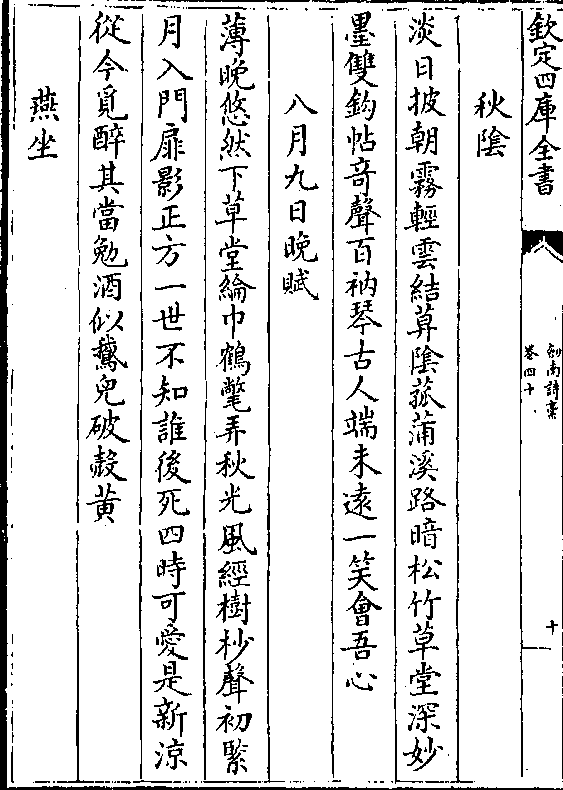 欽定四庫全書
劍南詩藁
卷四十
十
秋陰
淡日披朝霧輕雲結莫陰菰蒲溪路暗松竹草堂深妙
墨雙鈎帖竒聲百衲琴古人端未遠一笑會吾心
八月九日晚賦
薄晚悠然下草堂綸巾鶴氅弄秋光風經樹杪聲初緊
月入門扉影正方一世不知誰後死四時可愛是新涼
從今覓醉其當勉酒似鵞兒破殼黃
燕坐